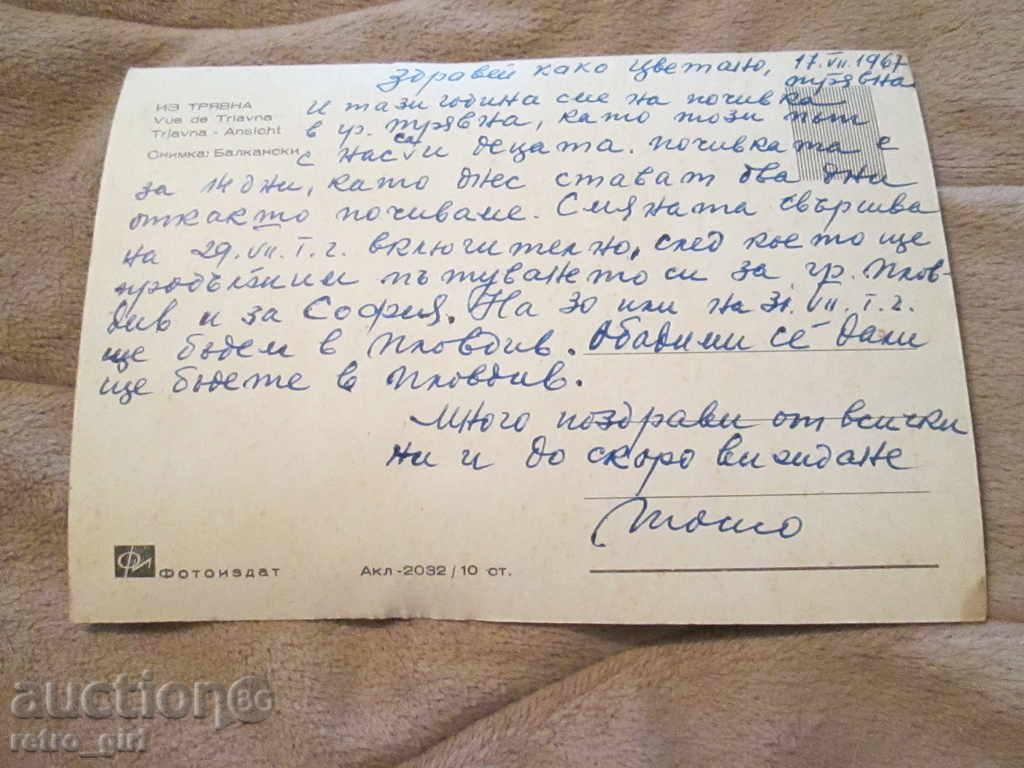 Здравей како Цветано, 17.VII.1967
Трявна
ИЗ ТРЯВНА
Vue de Triavna
Trjavna - Ansicht
Снимка: Балкански
И тази година сме на почивка
в гр. Трявна, като този път
с нас са и децата. Почивката е
за 14 дни, като днес стават два дни
откакто почиваме. Смяната свършва
на 29.VII.т.г. включително, след което ще
продължим пътуването си за гр. Плов-
див и за София. На 30 или на 31.VII.т.г.
ще бъдем в Пловдив. Обадими се дали
ще бъдете в Пловдив.
Много поздрави от всички
ни и до скоро виждане
Тошо
Фотоиздат
Акл-2032/10 ст.
auctionBG
retro_girl